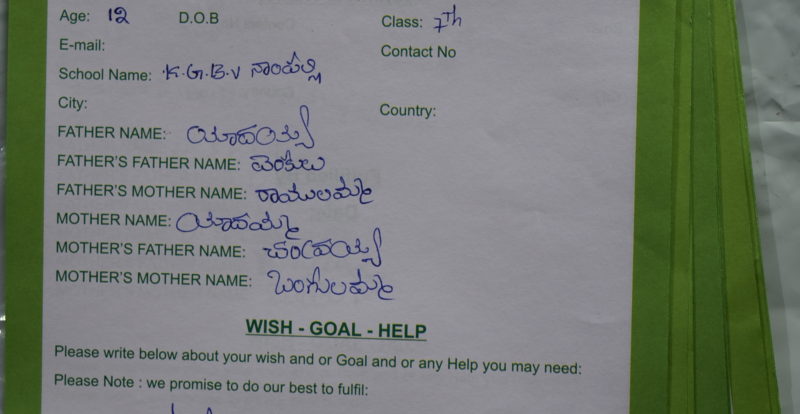 Age: 12 D.O.B Class: 7th
E-mail: Contact No
School Name: K.G.B.V నాంపల్లి
City: Country:
FATHER NAME: యాదయ్య
FATHER'S FATHER NAME: వెంకులు
FATHER'S MOTHER NAME: రాములమ్మ
MOTHER NAME: యాదమ్మ
MOTHER'S FATHER NAME: చంద్రయ్య
MOTHER'S MOTHER NAME:
WISH - GOAL - HELP
Please write below about your wish and or Goal and or any Help you may need:
Please Note : we promise to do our best to fulfil: